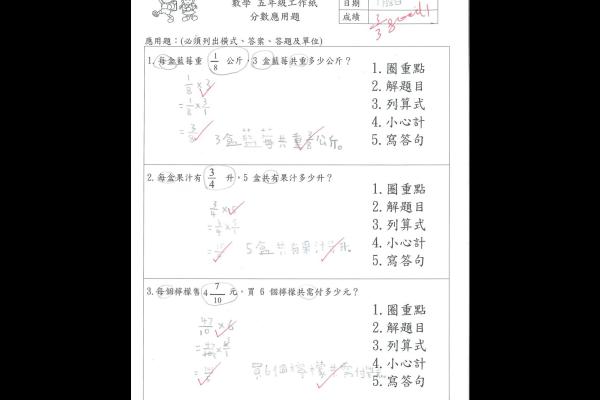 數學 五年級工作紙
分數應用題
日期
成績
3/3 good!
應用題：(必須列出橫式、答案、答題及單位)
1. 每盒藍莓重 1/8 公斤，3 盒藍莓共重多少公斤？
1/8 × 3
= 1/8 × 3/1
= 3/8
3盒藍莓共重3/8公斤。
1. 圈重點
2. 解題目
3. 列算式
4. 小心計
5. 寫答句
2. 每盒果汁有 3/4 升，5 盒共有果汁多少升？
3/4 × 5
= 3/4 × 5/1
5盒共有果汁
升。
1. 圈重點
2. 解題目
3. 列算式
4. 小心計
5. 寫答句
3. 每個檸檬售 4 7/10 元，買 6 個檸檬共需付多少元？
47/10 × 6
買6個檸檬共需付
1. 圈重點
2. 解題目
3. 列算式
4. 小心計
5. 寫答句